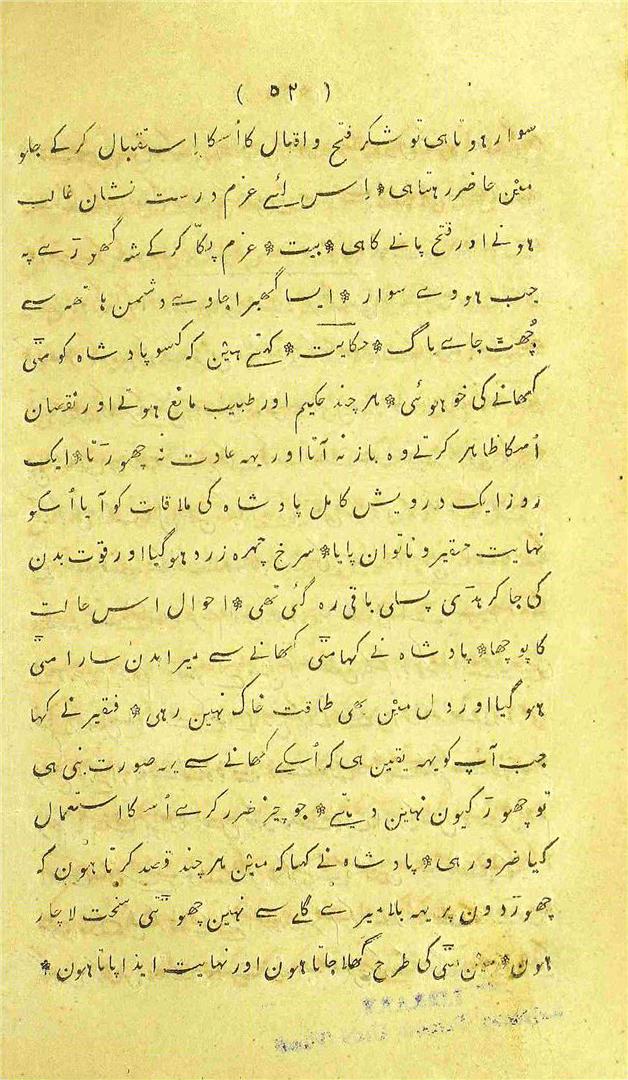 ( ۵۲ )
سوار ہوتا ہی تو شکر فتح و اقبال کا اُسکا اِستقبال کر کے جلو
مین حاضر رہتا ہی * اِس لئے عزم درست نشان غالب
ہونے اور فتح پانے کا ہی * بیت * عزم پکّا کر کے شہ گھوڑے پہ
جب ہووے سوار * ایسا گھبرا جاوے دشمن ہاتھہ سے
چُھٹ جاے باگ * حکایت * کہتے ہین کہ کسو پادشاہ کو مٹّی
کھانے کی خو ہوئی * ہرچند حکیم اور طبیب مانع ہوتے اور نقصان
اُسکا ظاہر کرتے وہ باز نہ آتا اور یہہ عادت نہ چھوڑتا * ایک
روز ایک درویش کامل پادشاہ کی ملاقات کو آیا اُسکو
نہایت حقیر و ناتوان پایا * سرخ چہرہ زرد ہو گیا اور قوّت بدن
کی جا کر ہڈّی پسلی باقی رہ گئی تھی * احوال اس حالت
کا پوچھا * پادشاہ نے کہا مٹّی کھانے سے میرا بدن سارا مٹّی
ہو گیا اور دل مین بھی طاقت خاک نہین رہی * فقیر نے کہا
جب آپ کو یہہ یقین ہی کہ اُسکے کھانے سے یہہ صورت بنی ہی
تو چھوڑ کیون نہین دیتے * جو چیز ضرر کرے اُسکا استعمال
کیا ضرور ہی * پادشاہ نے کہا کہ مین ہرچند قصد کرتا ہون کہ
چھوڑ دون پر یہہ بلا میرے گلے سے نہین چھوٹتی سخت لاچار
ہون * مین مٹّی کی طرح گھلا جاتا ہون اور نہایت ایذا پاتا ہون *